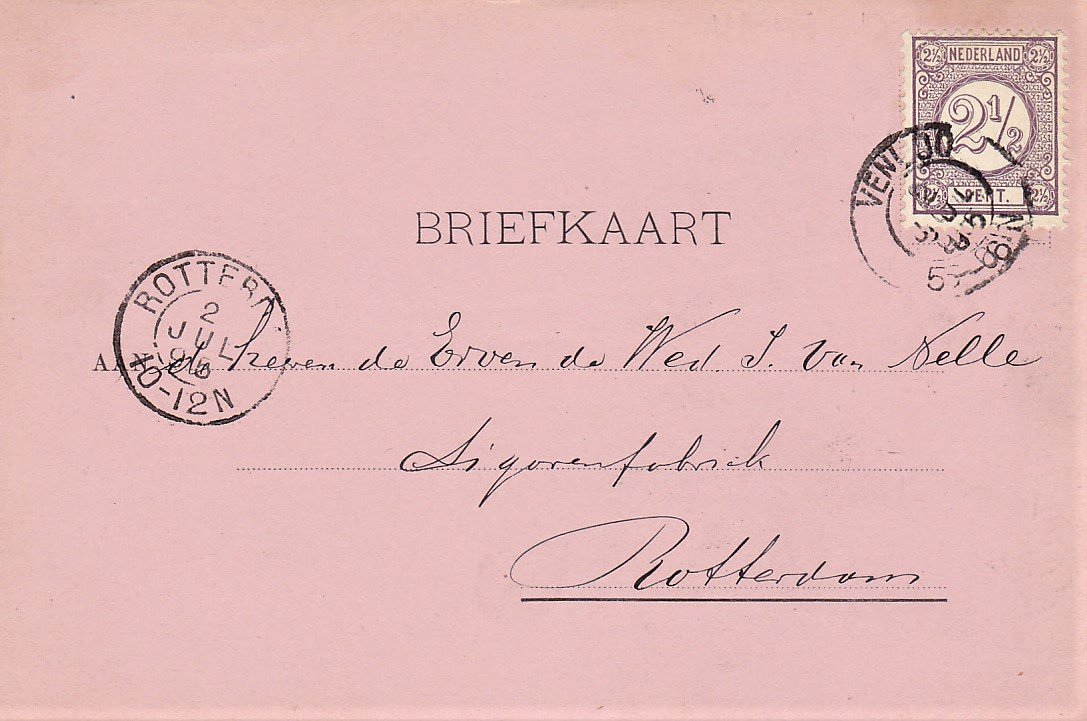 2½ NEDERLAND 2½
2 1/2
2½ CENT. 2½
VENLOO
5
BRIEFKAART
ROTTERD
2
JUL
96
10-12N
AAN de heeren de Erven de Wed. J. van Nelle
Sigarenfabriek
Rotterdam